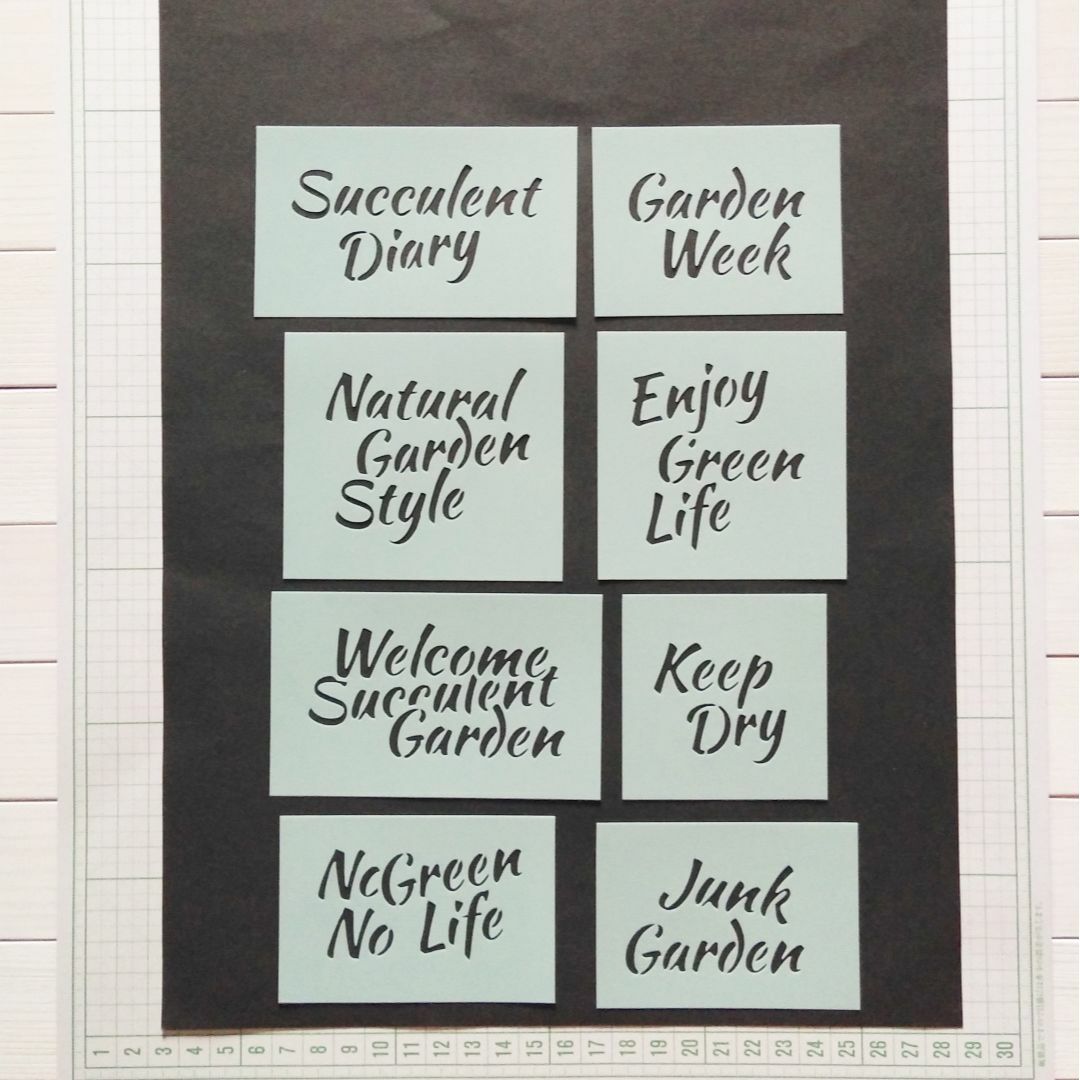 Succulent
Diary
Garden
Week
Natural
Garden
Style
Enjoy
Green
Life
Welcome
Succulent
Garden
Keep
Dry
NcGreen
No Life
Junk
Garden
1 2 3 4 5 6 7 8 9 10 11 12 13 14 15 16 17 18 19 20 21 22 23 24 25 26 27 28 29 30